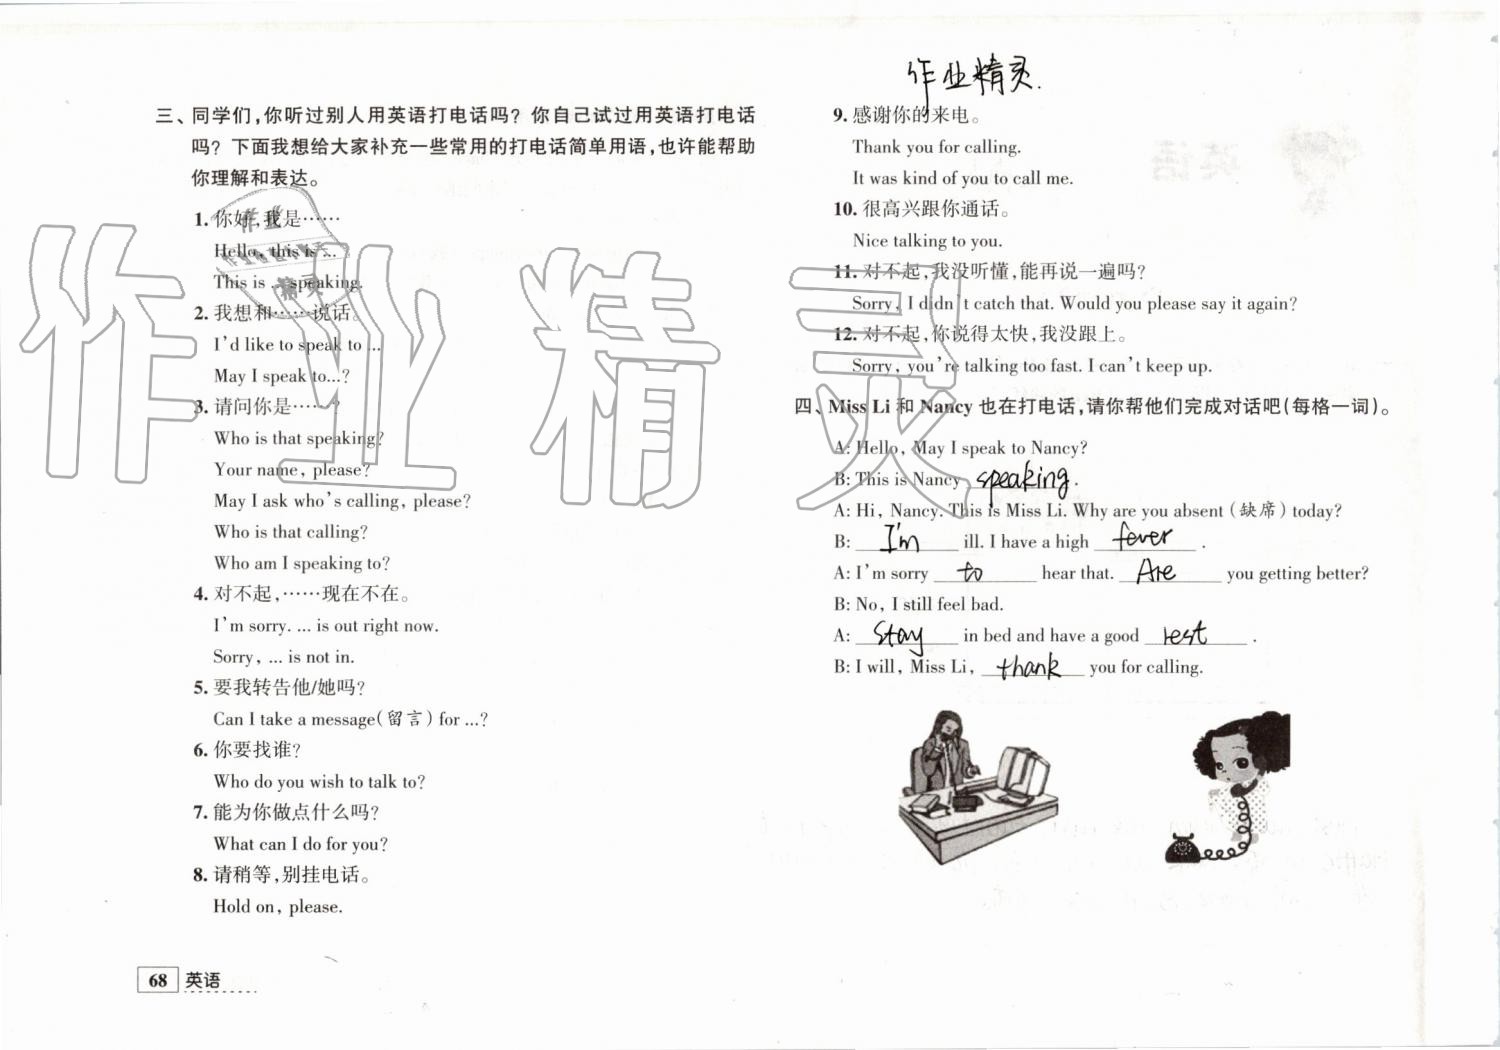 作业精灵.
三、同学们,你听过别人用英语打电话吗? 你自己试过用英语打电话
吗? 下面我想给大家补充一些常用的打电话简单用语,也许能帮助
你理解和表达。
1. 你好,我是……
Hello, this is ...
This is ... speaking.
2. 我想和……说话。
I'd like to speak to ...
May I speak to...?
3. 请问你是……?
Who is that speaking?
Your name, please?
May I ask who's calling, please?
Who is that calling?
Who am I speaking to?
4. 对不起,……现在不在。
I'm sorry. ... is out right now.
Sorry, ... is not in.
5. 要我转告他/她吗?
Can I take a message(留言) for ...?
6. 你要找谁?
Who do you wish to talk to?
7. 能为你做点什么吗?
What can I do for you?
8. 请稍等,别挂电话。
Hold on, please.
68 英语
9. 感谢你的来电。
Thank you for calling.
It was kind of you to call me.
10. 很高兴跟你通话。
Nice talking to you.
11. 对不起,我没听懂,能再说一遍吗?
Sorry, I didn't catch that. Would you please say it again?
12. 对不起,你说得太快,我没跟上。
Sorry, you're talking too fast. I can't keep up.
四、Miss Li 和 Nancy 也在打电话,请你帮他们完成对话吧(每格一词)。
A: Hello, May I speak to Nancy?
B: This is Nancy speaking.
A: Hi, Nancy. This is Miss Li. Why are you absent (缺席) today?
B: I'm ill. I have a high fever .
A: I'm sorry to hear that. Are you getting better?
B: No, I still feel bad.
A: Stay in bed and have a good rest .
B: I will, Miss Li, thank you for calling.
作业精灵